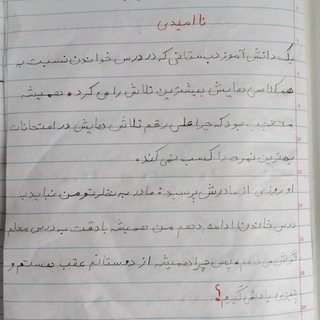 ناامیدی
یک دانش آموز دبستانی که در درس خواندن نسبت به
همکلاسی هایش بیشترین تلاش را می کرد. همیشه
متعجب بود که چرا علی رقم تلاش هایش در امتحانات
بهترین نمره را کسب نمی کند.
او روزی از مادرش پرسید: مادر به نظر تو من نباید به
درس خاندن ادامه دهم من همیشه با دقت به درس معلم
گوش می دهم، پس چرا همیشه از دوستانم عقب هستم و
چیزی یاد نمی گیرم؟